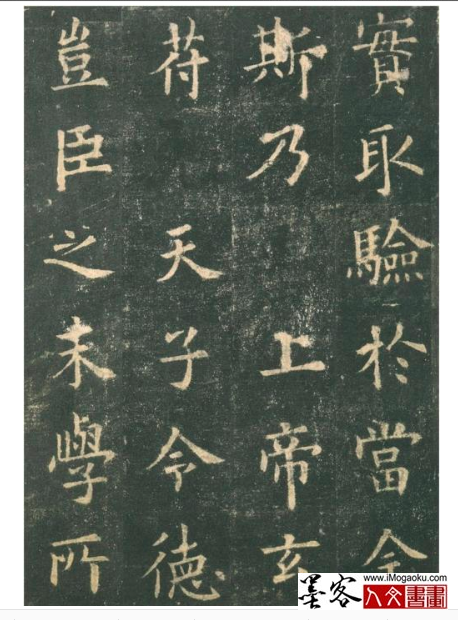 實取驗於當今
斯乃 上帝玄
苻 天子令德
豈臣之末學所
墨客
www.iMogaoku.com
人文書畫